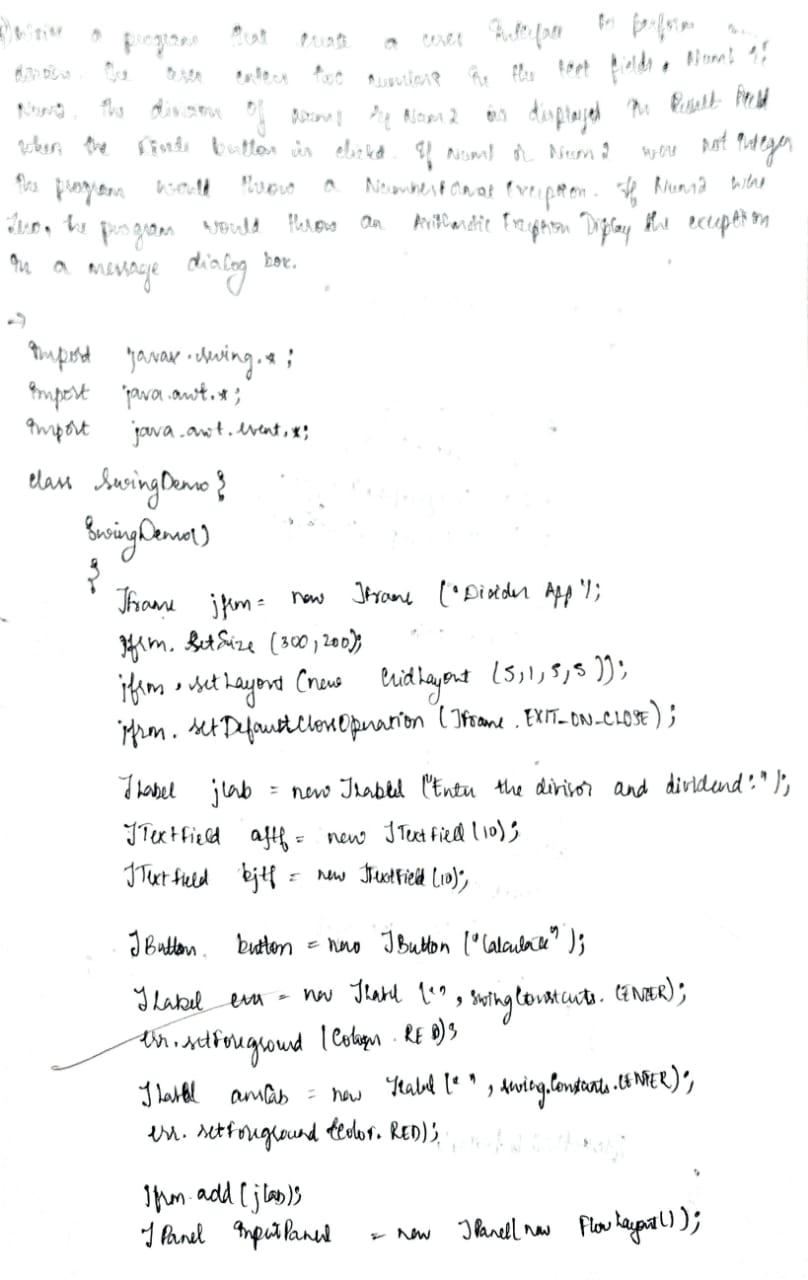 Write a program that create a user Interface to perform
division. The user enters two numbers in the text fields, Num1 &
Num2. The division of Num1 by Num2 is displayed in Result Field
when the Divide button is clicked. If Num1 or Num2 were not integer
The program would throw a Exception. If Num2 were
Zero, the program would throw an Arithmetic Exception Display the exception
In a message dialog box.
→
import javax.swing.*;
import java.awt.*;
import java.awt.event.*;
class SwingDemo {
SwingDemo()
{
JFrame jfrm = new JFrame ("Divider App");
jfrm. SetSize (300, 200);
jfrm. setLayout (new GridLayout (5,1,5,5));
jfrm. setDefaultCloseOperation (JFrame. EXIT_ON_CLOSE);
JLabel jlab = new JLabel ("Enter the divisor and dividend:");
JTextField ajtf = new JTextField (10);
JTextField bjtf = new JTextField (10);
JButton button = new JButton ("Calculate");
JLabel err = new JLabel (" ", SwingConstants. CENTER);
err. setForeground (Color. RED);
JLabel anslab = new JLabel (" ", swing.Constants. CENTER);
err. setForeground (color. RED);
jfrm. add (jlab);
JPanel inputPanel = new JPanel(new FlowLayout());